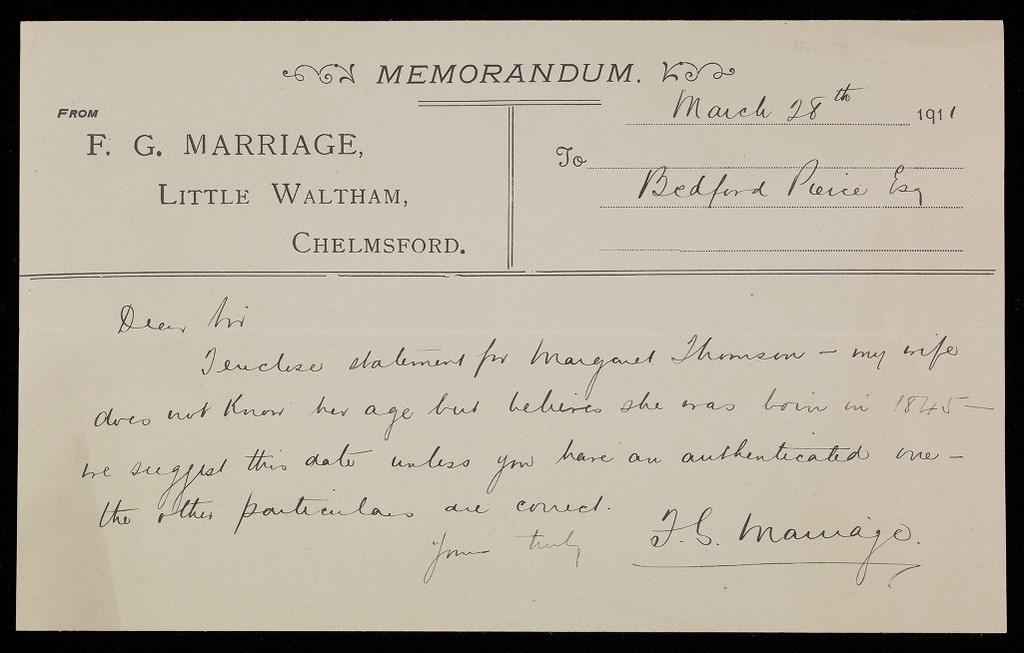 MEMORANDUM.
March 28th 1911
FROM
F. G. MARRIAGE,
LITTLE WALTHAM,
CHELMSFORD.
To
Bedford Pierce Esq
Dear Sir
I enclose statement for Margaret Thomson – my wife
does not know her age but believes she was born in 1845 –
we suggest this date unless you have an authenticated one –
the other particulars are correct.
Yours truly
F. G. Marriage.